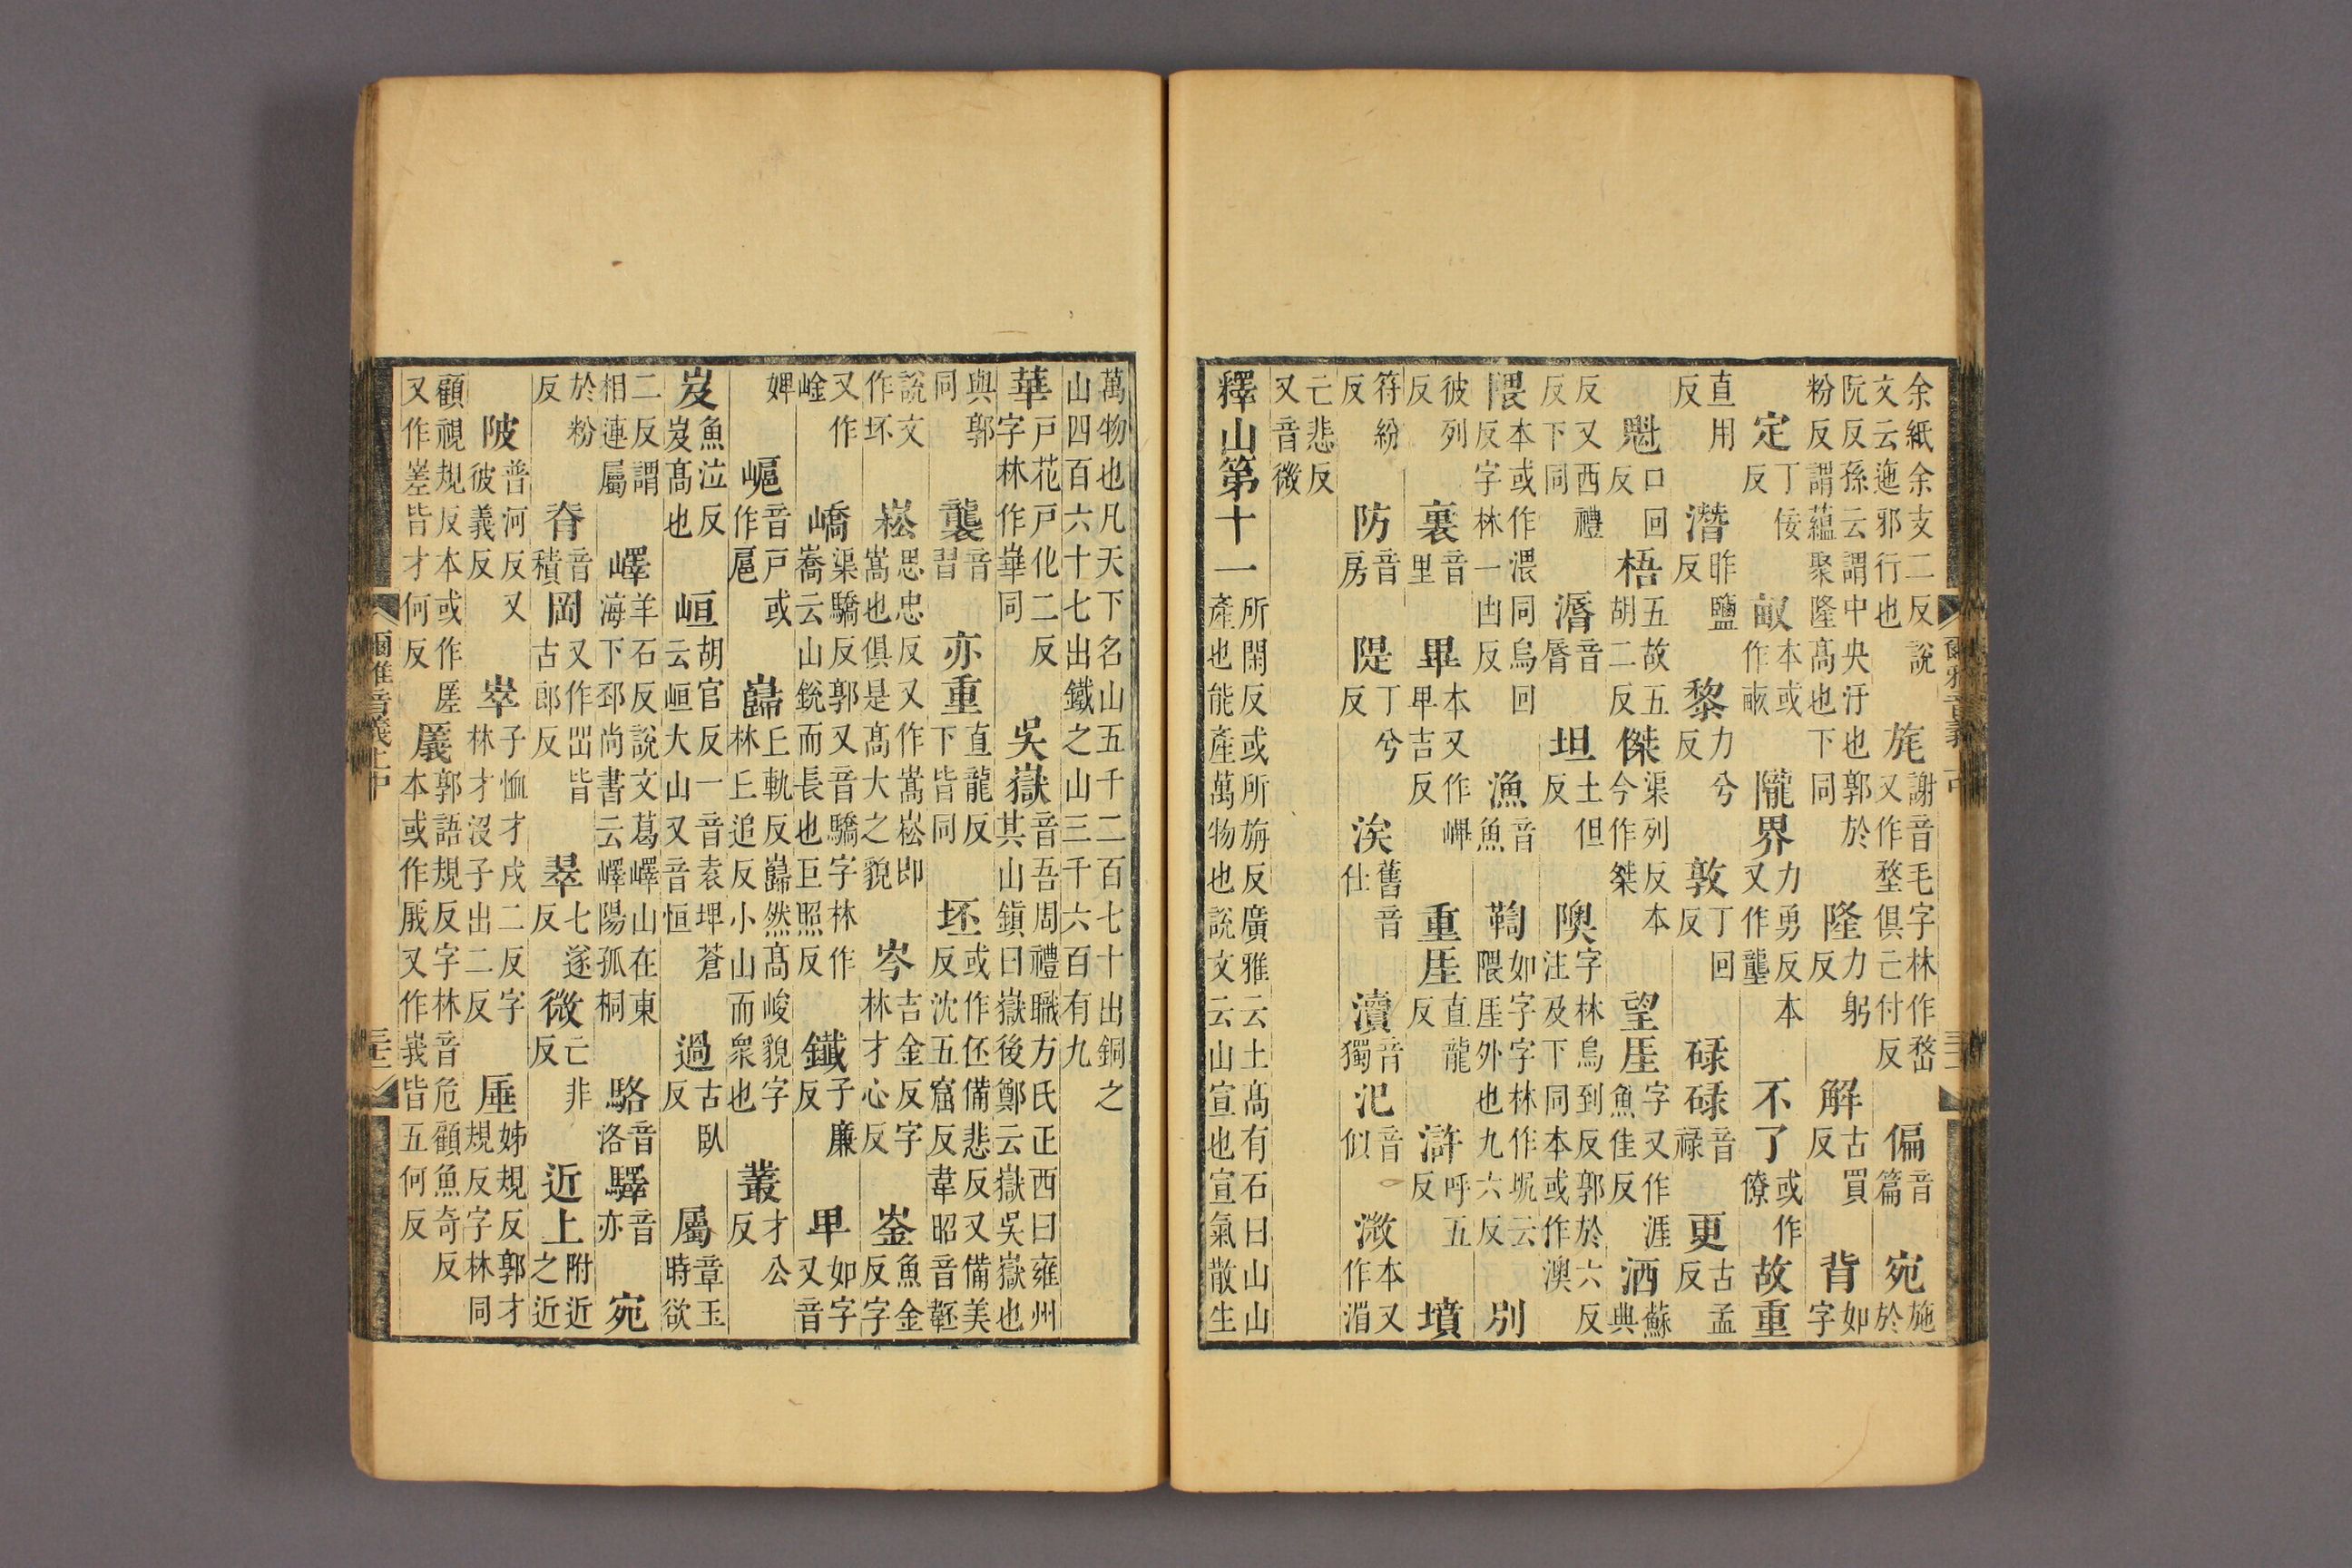 余紙余支二反說文云迤邪行也旄謝音毛字林作嵍又作堥俱亡付反偏音篇宛施於
阮反孫云謂中央汙也郭於粉反謂蘊聚隆高也下同隆力躬反解古買反背如字
定丁佞反畝本或作畞隴界力勇反本又作壟不了或作僚故重
直用反潛昨鹽反黎力兮反敦丁回反碌碌音祿更古孟反
魁口回反梧五故五胡二反傑渠列反本今作桀望厓字又作涯魚佳反洒蘇典
反又西禮反下同漘音脣坦土但反隩字林烏到反郭於六反注及下同本或作澳
隈本或作渨同烏回反字林一凷反漁音魚鞫如字字林作坭云隈厓外也九六反別
彼列反裏音里畢本又作㻫卑吉反重厓直龍反滸呼五反墳
符紛反防音房隄丁兮反涘舊音仕瀆音獨汜音似溦本又作湄
亡悲反又音微
釋山第十一所閒反或所旃反廣雅云土高有石曰山山產也能產萬物也說文云山宣也宣氣散生
萬物也凡天下名山五千二百七十出銅之山四百六十七出鐵之山三千六百有九
華戶花戶化二反字林作崋同吳嶽音吾周禮職方氏正西曰雍州其山鎮曰嶽後鄭云嶽吳嶽也
與郭同襲音習亦重直龍反下皆同坯或作伾備悲反又備美反沈五窟反韋昭音
說文作坏崧思忠反又作嵩崧即嵩也俱是高大之貌岑吉金反字林才心反崟魚金反字
又作崯嶠渠驕反郭又音驕字林作嶠云山銳而長也巨照反鐵子廉反卑如字又音
婢音戶或作扈巋丘軌反巋然高峻貌字林丘追反小山而衆也叢才公反
岌魚泣反岌高也峘胡官反一音袁埤蒼云峘大山又音恒過古臥反屬章玉時欲
二反謂相連屬嶧羊石反說文葛嶧山在東海下邳尚書云嶧陽孤桐駱音洛驛音亦宛
於粉反脊音積岡又作皆古郎反翠七遂反微亡非反近上附近之近
陂普河反又彼義反崒子恤才戌二反字林才沒子出二反厜姊規反郭才規反字林同
顧視規反本或作又作嵳皆才何反㕒郭語規反字林音危顧魚奇反本或作又作峩皆五何反
爾雅音義上中